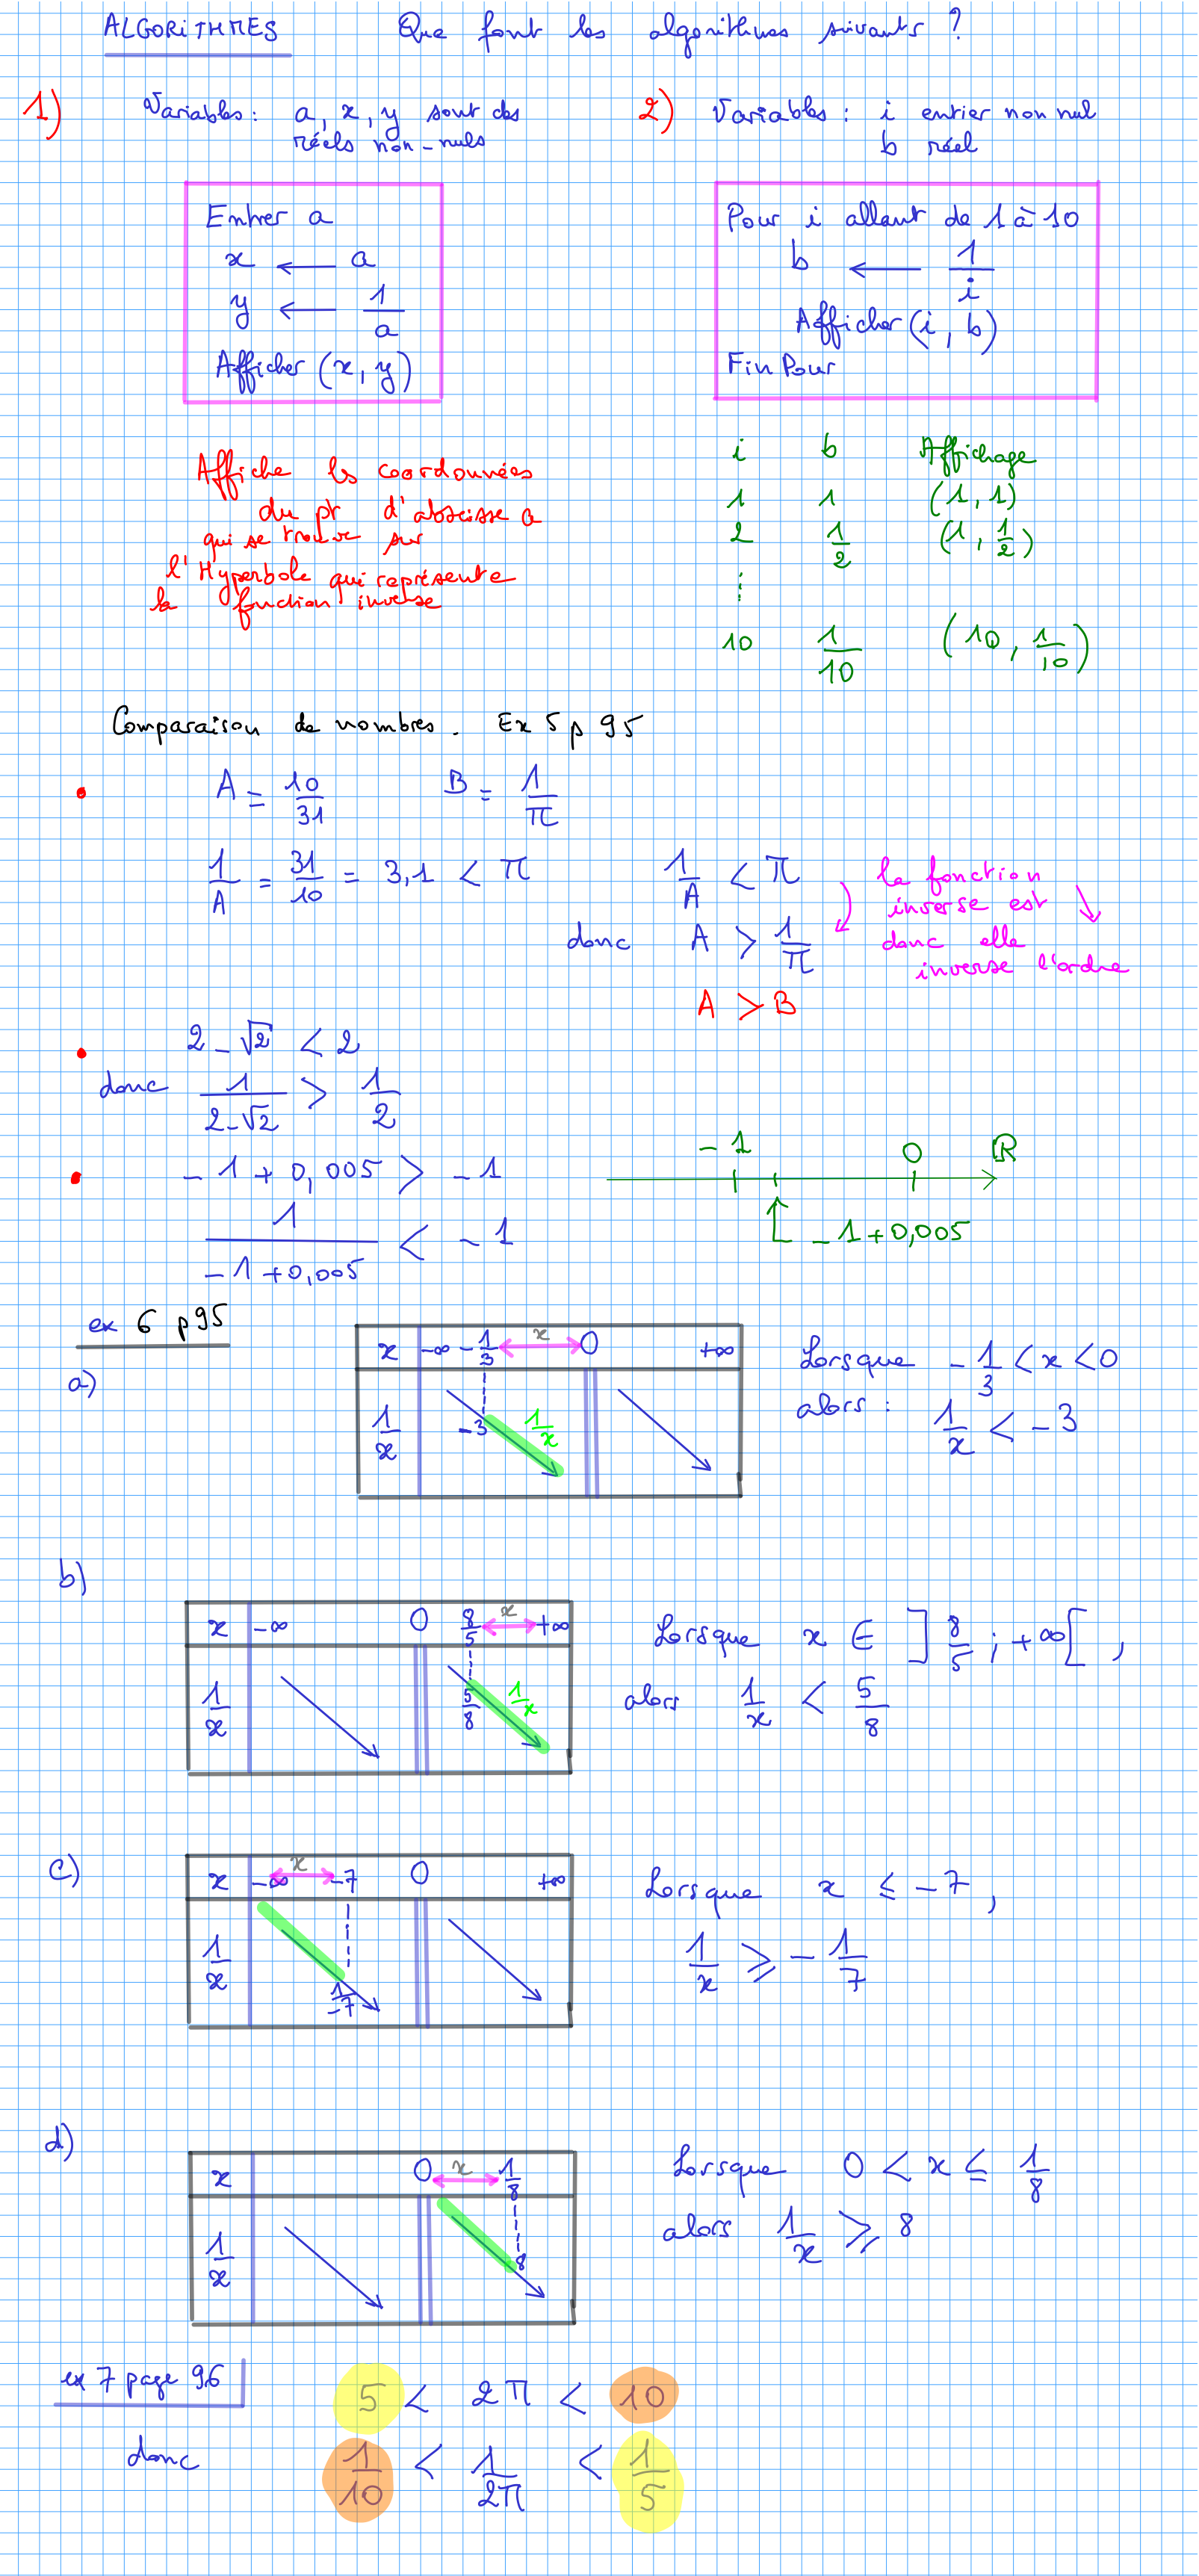 ALGORITHMES Que font les algorithmes suivants ?
1) Variables : a, x, y sont des
réels non-nuls
Entrer a
x ← a
y ← 1/a
Afficher (x, y)
Affiche les coordonnées
du pt d'abscisse a
qui se trouve sur
l'Hyperbole qui représente
la fonction inverse
2) Variables : i entier non nul
b réel
Pour i allant de 1 à 10
b ← 1/i
Afficher (i, b)
Fin Pour
i b Affichage
1 1 (1, 1)
2 1/2 (1, 1/2)
⋮
10 1/10 (10, 1/10)
Comparaison de nombres. Ex 5 p 95
• A = 10/31 B = 1/π
1/A = 31/10 = 3,1 < π
1/A < π
donc A > 1/π
A > B
la fonction
inverse est ↘
donc elle
inverse l'ordre
• 2 - √2 < 2
donc 1/(2-√2) > 1/2
• -1 + 0,005 > -1
1/(-1+0,005) < -1
-1 0 ℝ
-1+0,005
ex 6 p95
a)
x -∞ -1/3 x 0 +∞
1/x -3 1/x
Lorsque -1/3 < x < 0
alors : 1/x < -3
b)
x -∞ 0 8/5 x +∞
1/x 5/8 1/x
Lorsque x ∈ ]8/5 ; +∞[ ,
alors 1/x < 5/8
c)
x -∞ x -7 0 +∞
1/x 1/-7
Lorsque x ≤ -7 ,
1/x ≥ -1/7
d)
x 0 x 1/8
1/x 8
Lorsque 0 < x ≤ 1/8
alors 1/x ≥ 8
ex 7 page 96
5 < 2π < 10
donc 1/10 < 1/2π < 1/5